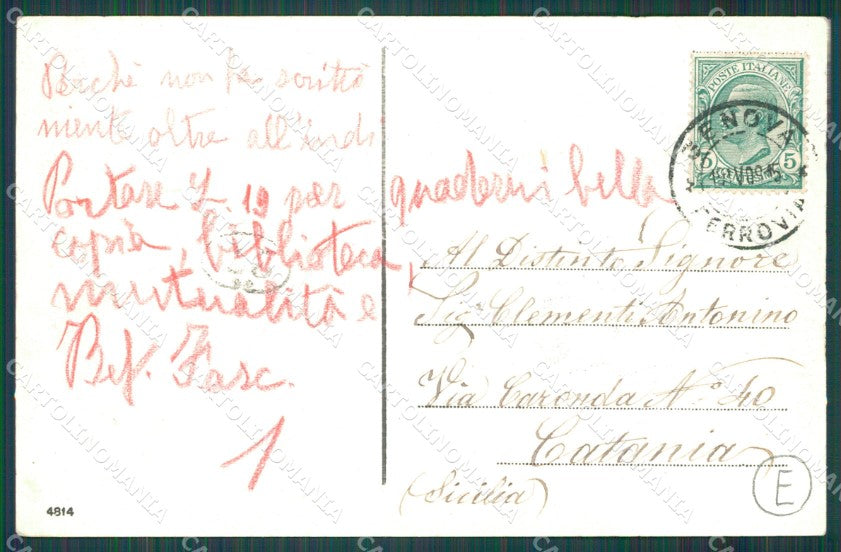 Perchè non ha scritto
niente oltre all'
Portare L. 19 per quaderni bella
copia, biblioteca,
mutualità e
Bef. Fasc.
1
POSTE ITALIANE
5 5
GENOVA
FERROVIA
Al Distinto Signore
Sig. Clementi Antonino
Via Caronda N° 40
Catania
(Sicilia)
E
4814
CARTOLINOMANIA